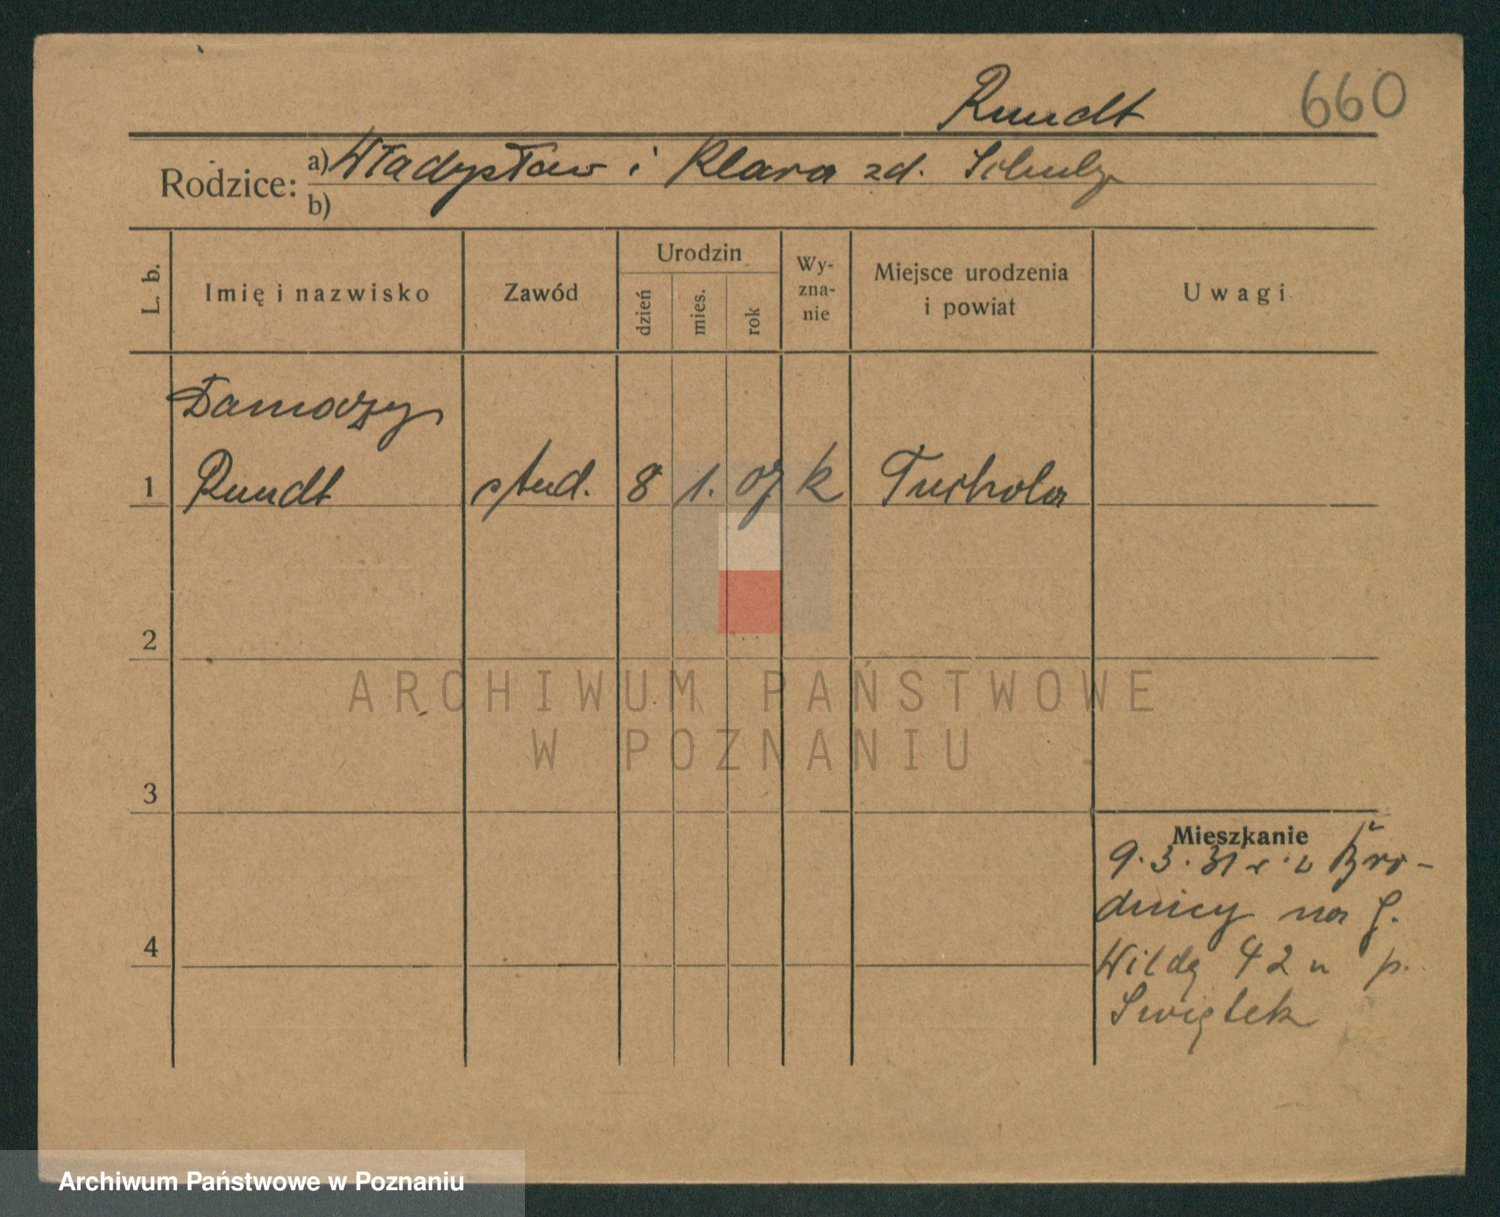 Rundt 660
Rodzice: a) Władysław i Klara zd. Schulz
b)
L. b. Imię i nazwisko Zawód Urodzin dzień mies. rok Wy-
zna-
nie Miejsce urodzenia
i powiat Uwagi
Damazy
1 Rundt stud. 8 1. 07 k Tuchola
2
ARCHIWUM PAŃSTWOWE
W POZNANIU
3
Mieszkanie
9. 3. 31 z Bro-
dnicy na G.
4
Wildę 42 u p.
Swiątek
Archiwum Państwowe w Poznaniu